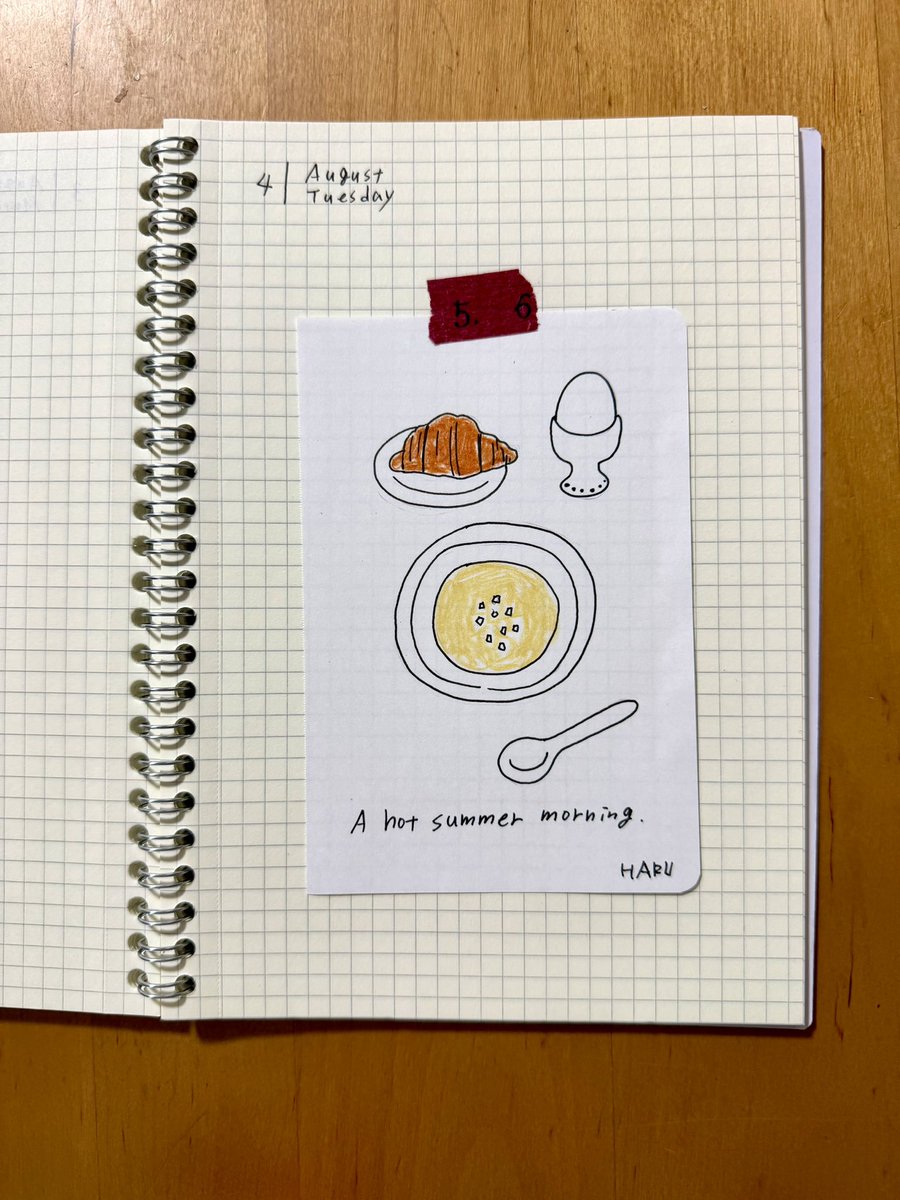 4 August
Tuesday
5. 6
A hot summer morning.
HARU